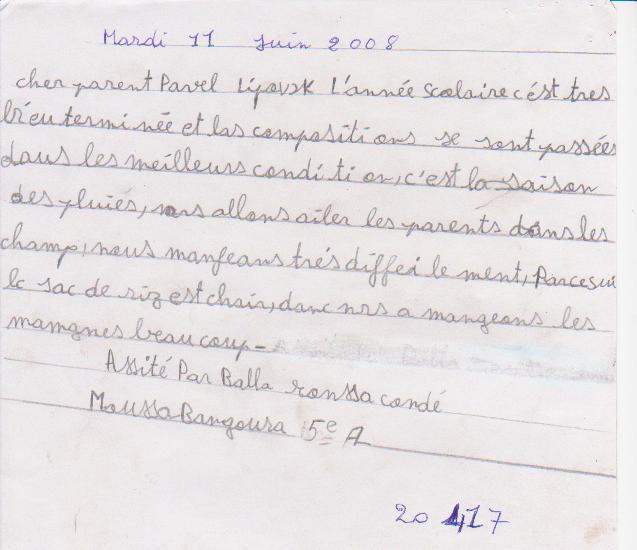 Mardi 11 Juin 2008
cher parent Pavel Lipovsk L'année scolaire c'ést tres
bien terminée et las compositions se sont passées
dans les meilleurs condition, c'est la saison
des pluies, nrs allons aiter les parents dans les
champ, nous mangeans trés differ le ment, Parcesui
le sac de riz est chair, danc nrs a mangeons les
mamgnes beaucoup -
Assité Par Balla ronssa condé
Moussa Bangoura 5e A
20 417